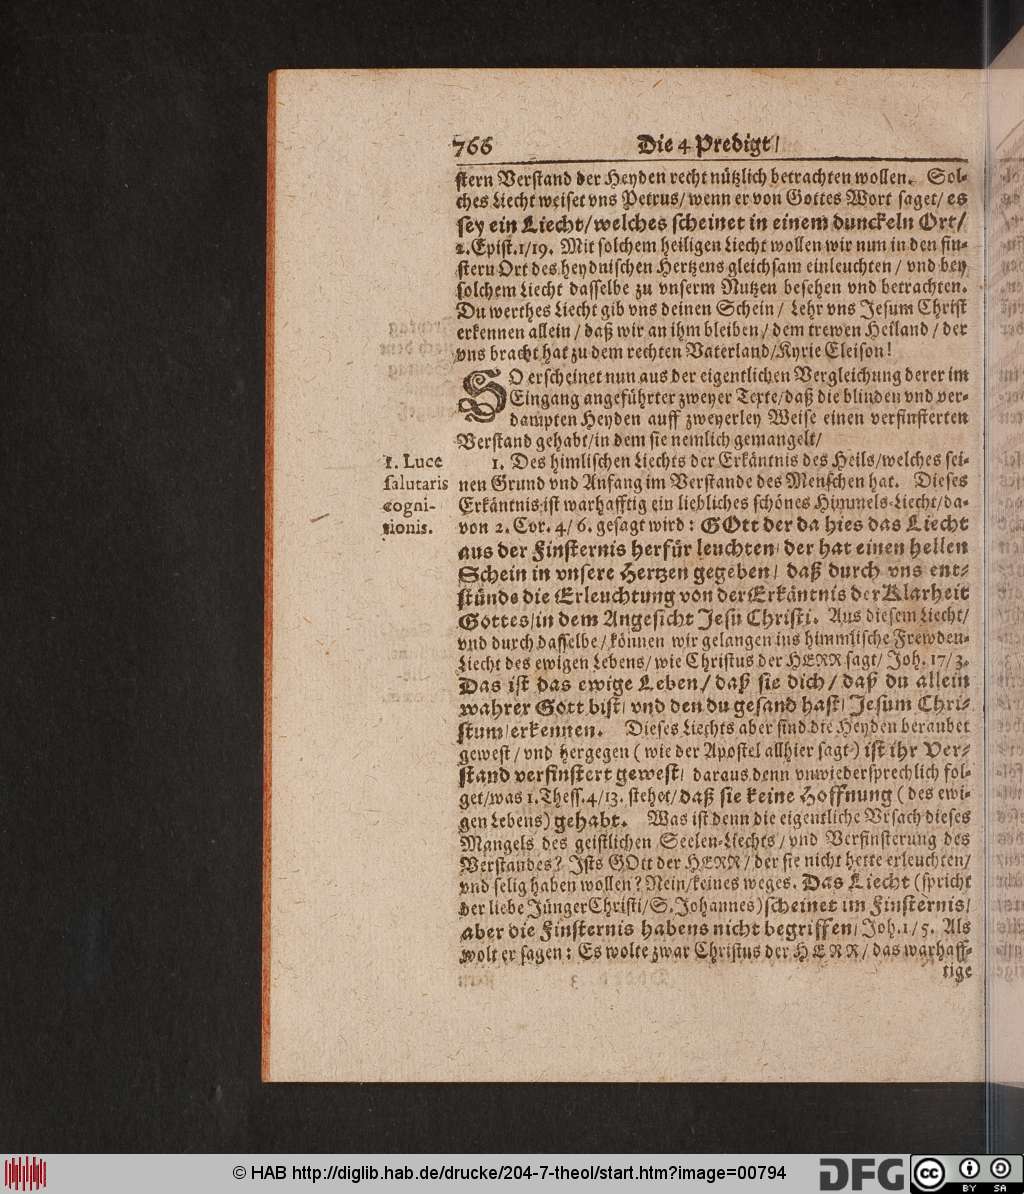 766 Die 4 Predigt/
stern Verstand der Heyden recht nützlich betrachten wollen. Sol-
ches Liecht weiset vns Petrus/wenn er von Gottes Wort saget/ es
sey ein Liecht/welches scheinet in einem dunckeln Ort/
2.Epist.1/19. Mit solchem heiligen Liecht wollen wir nun in den fin-
stern Ort des heydnischen Hertzens gleichsam einleuchten/ vnd bey
solchem Liecht dasselbe zu vnserm Nutzen besehen vnd betrachten.
Du werthes Liecht gib vns deinen Schein/ Lehr vns Jesum Christ
erkennen allein/ daß wir an ihm bleiben/ dem trewen Heiland/ der
vns bracht hat zu dem rechten Vaterland/Kyrie Eleison!
SO erscheinet nun aus der eigentlichen Vergleichung derer im
Eingang angeführter zweyer Texte/daß die blinden vnd ver-
dampten Heyden auff zweyerley Weise einen verfinsterten
Verstand gehabt/in dem sie nemlich gemangelt/
1. Luce
salutaris
cogni-
tionis.
1. Des himlischen Liechts der Erkäntnis des Heils/welches sei-
nen Grund vnd Anfang im Verstande des Menschen hat. Dieses
Erkäntnis ist warhafftig ein liebliches schönes Himmels-Liecht/da-
von 2. Cor. 4/ 6. gesagt wird: GOtt der da hies das Liecht
aus der Finsternis herfür leuchten/ der hat einen hellen
Schein in vnsere Hertzen gegeben/ daß durch vns ent-
stünde die Erleuchtung von der Erkäntnis der Klarheit
Gottes/in dem Angesicht Jesu Christi. Aus diesem Liecht/
vnd durch dasselbe/können wir gelangen ins himmlische Frewden-
Liecht des ewigen Lebens/wie Christus der HERR sagt/ Joh. 17/3.
Das ist das ewige Leben/ daß sie dich/ daß du allein
wahrer Gott bist/ vnd den du gesand hast/ Jesum Chri-
stum/erkennen. Dieses Liechts aber sind die Heyden beraubet
gewest/ vnd hergegen (wie der Apostel allhier sagt) ist ihr Ver-
stand verfinstert gewest/ daraus denn vnwiedersprechlich fol-
get/was 1.Thess.4/13. stehet/daß sie keine Hoffnung (des ewi-
gen Lebens) gehabt. Was ist denn die eigentliche Vrsach dieses
Mangels des geistlichen Seelen-Liechts/ vnd Verfinsterung des
Verstandes? Ists GOtt der HERR/ der sie nicht hette erleuchten/
vnd selig haben wollen? Nein/keines weges. Das Liecht (spricht
der liebe Jünger Christi/S. Johannes) scheinet im Finsternis/
aber die Finsternis habens nicht begriffen/ Joh.1/5. Als
wolt er sagen: Es wolte zwar Christus der HERR/ das warhaff-
tige
© HAB http://diglib.hab.de/drucke/204-7-theol/start.htm?image=00794
DFG
cc BY SA